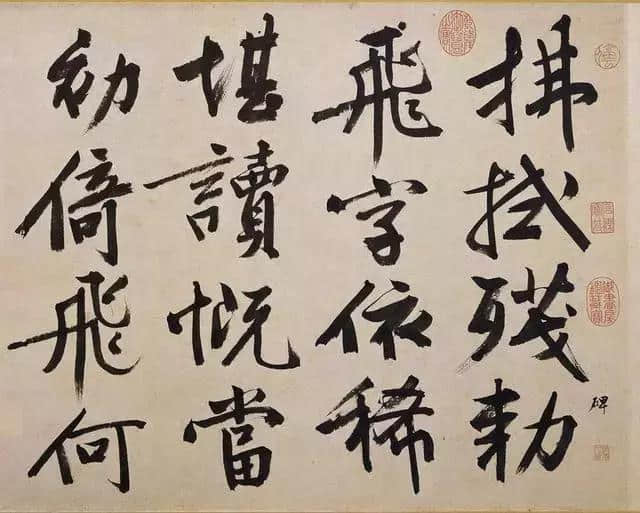 拂拭殘勅
碑
飛字依稀
堪讀慨當
初倚飛何